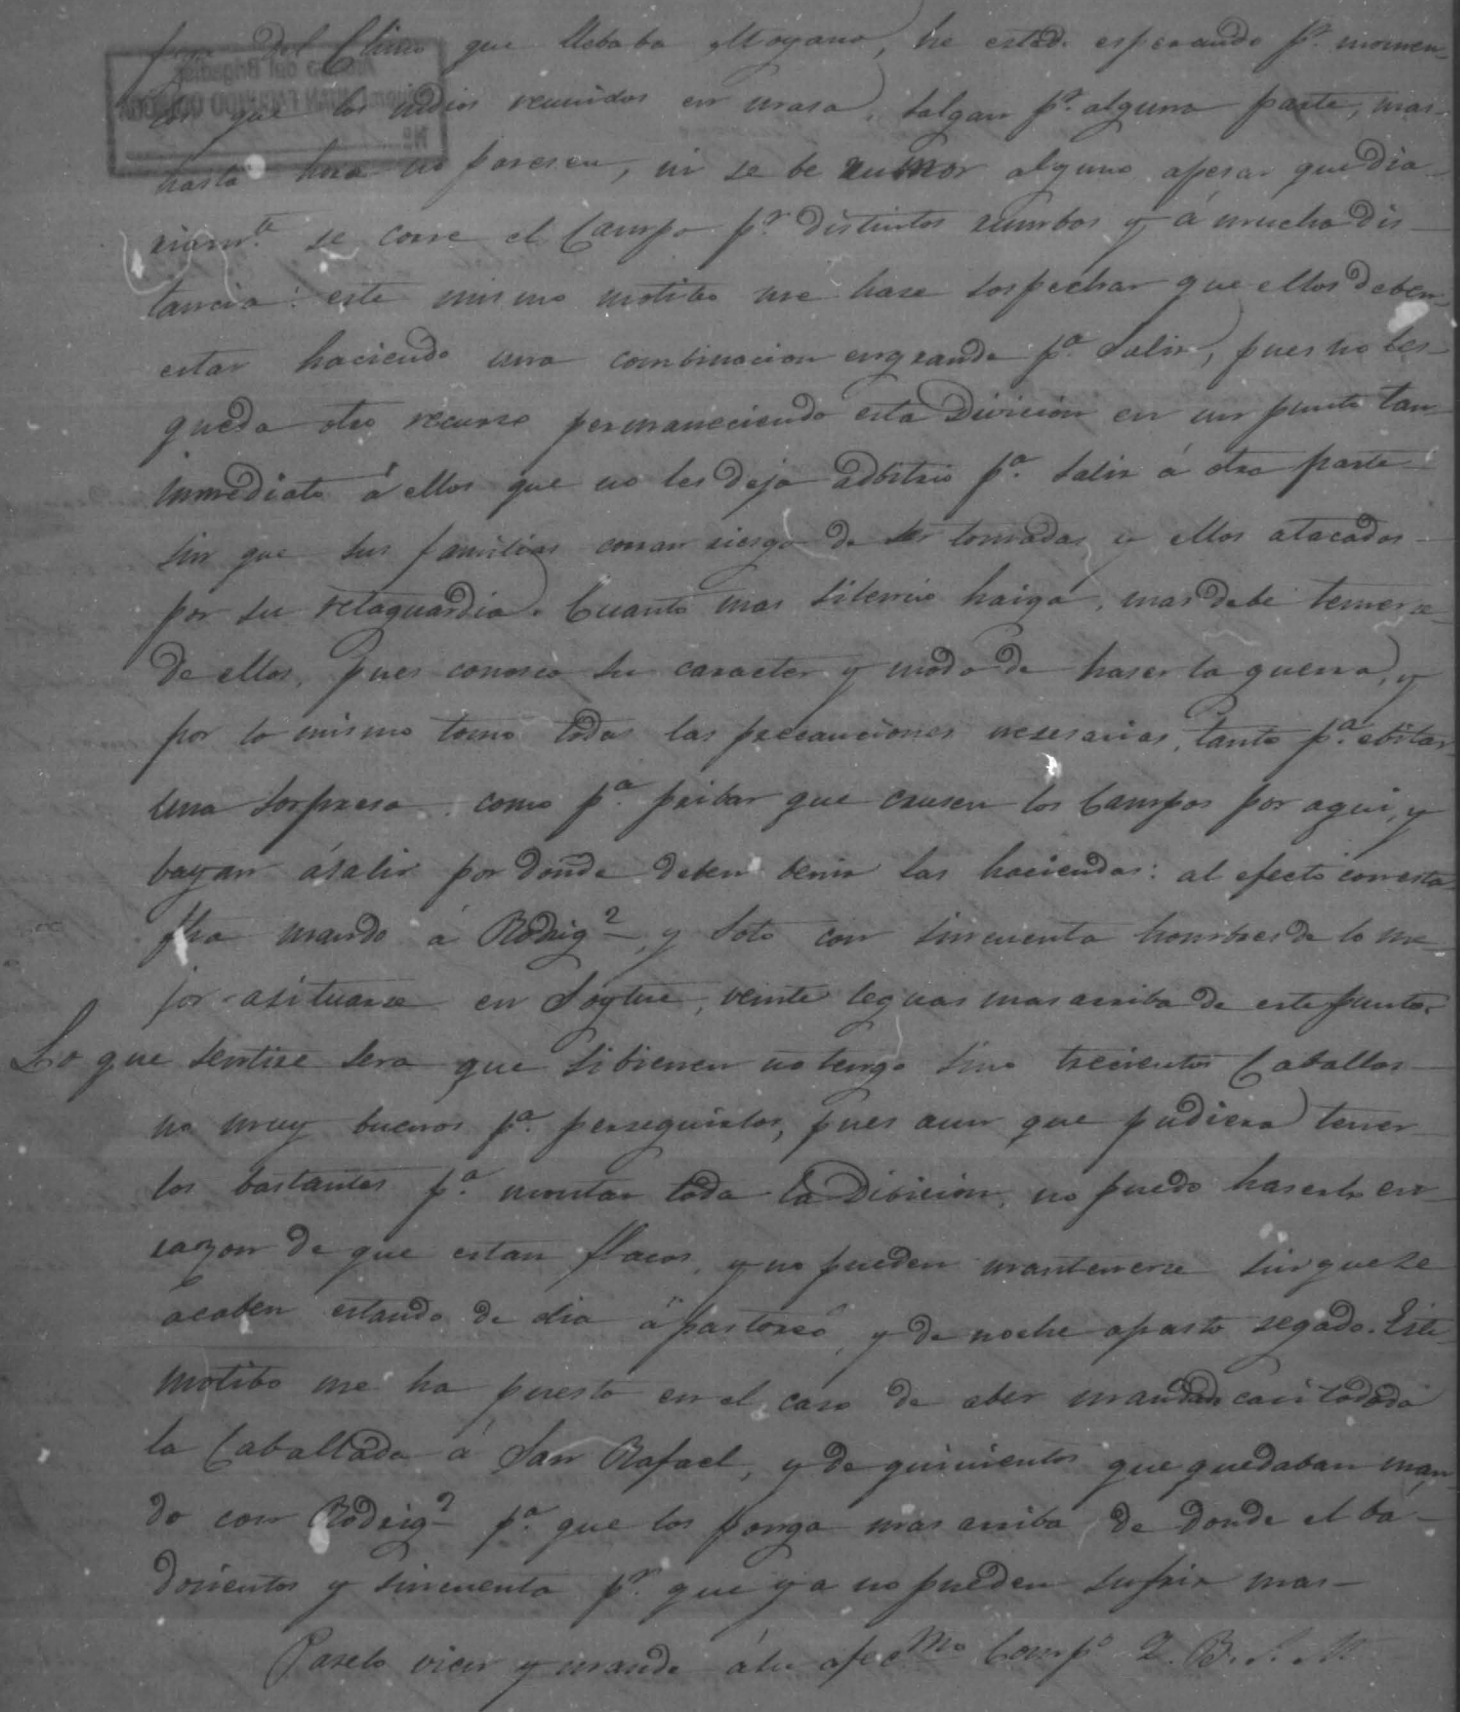 del Chino que llebaba Moyano, he estado esperando pr. momen-
tos que los indios reunidos en masa, salgan pr. alguna parte, mas
hasta hora no paresen, ni se be rumor alguno apesar que dia-
riamte. se corre el Campo pr. distintos rumbos y á mucha dis-
tancia: este mismo motibo me hase sospechar que ellos deben
estar haciendo una combinacion engrande pa. salir, pues no les
queda otro recurso permaneciendo esta Division en un punto tan
inmediato á ellos que no les deja adbitrio pa. salir á otra parte
sin que sus familias corran riesgo de ser tomadas y ellos atacados
por su retaguardia. Cuanto mas silencio haiga, mas debe temerse
de ellos, pues conosco su caracter y modo de haser la guerra, y
por lo mismo tomo todas las precauciones nesesarias, tanto pa. ebitar
una sorpresa, como pa. pribar que crusen los Campos por aqui, y
bayan ásalir por donde deben benir las haciendas: al efecto con esta
fha mando á Rodrigz. y Soto con sincuenta hombres de lo me-
jor asituarse en Soytue, veinte leguas mas arriba de este punto.
Lo que sentire sera que sibienen no tengo sino trecientos Caballos
no muy buenos pa. perseguirlos, pues aun que pudiera tener
los bastantes pa. montar toda la Dibicion, no puedo haserlo en
razon de que estan flacos, y no pueden mantenerse sin que se
acaben estando de dia á pastoreo, y de noche apasto segado. Este
motibo me ha puesto en el caso de aber mandado casi toda
la Caballada á San Rafael, y de quinientos que quedaban man-
do con Rodrigz. pa. que los ponga mas arriba de donde el ba
docientos y sincuenta pr. que ya no pueden sufrir mas—
Paselo vien y mande á su afecmo Compo. Q. B. S. M.